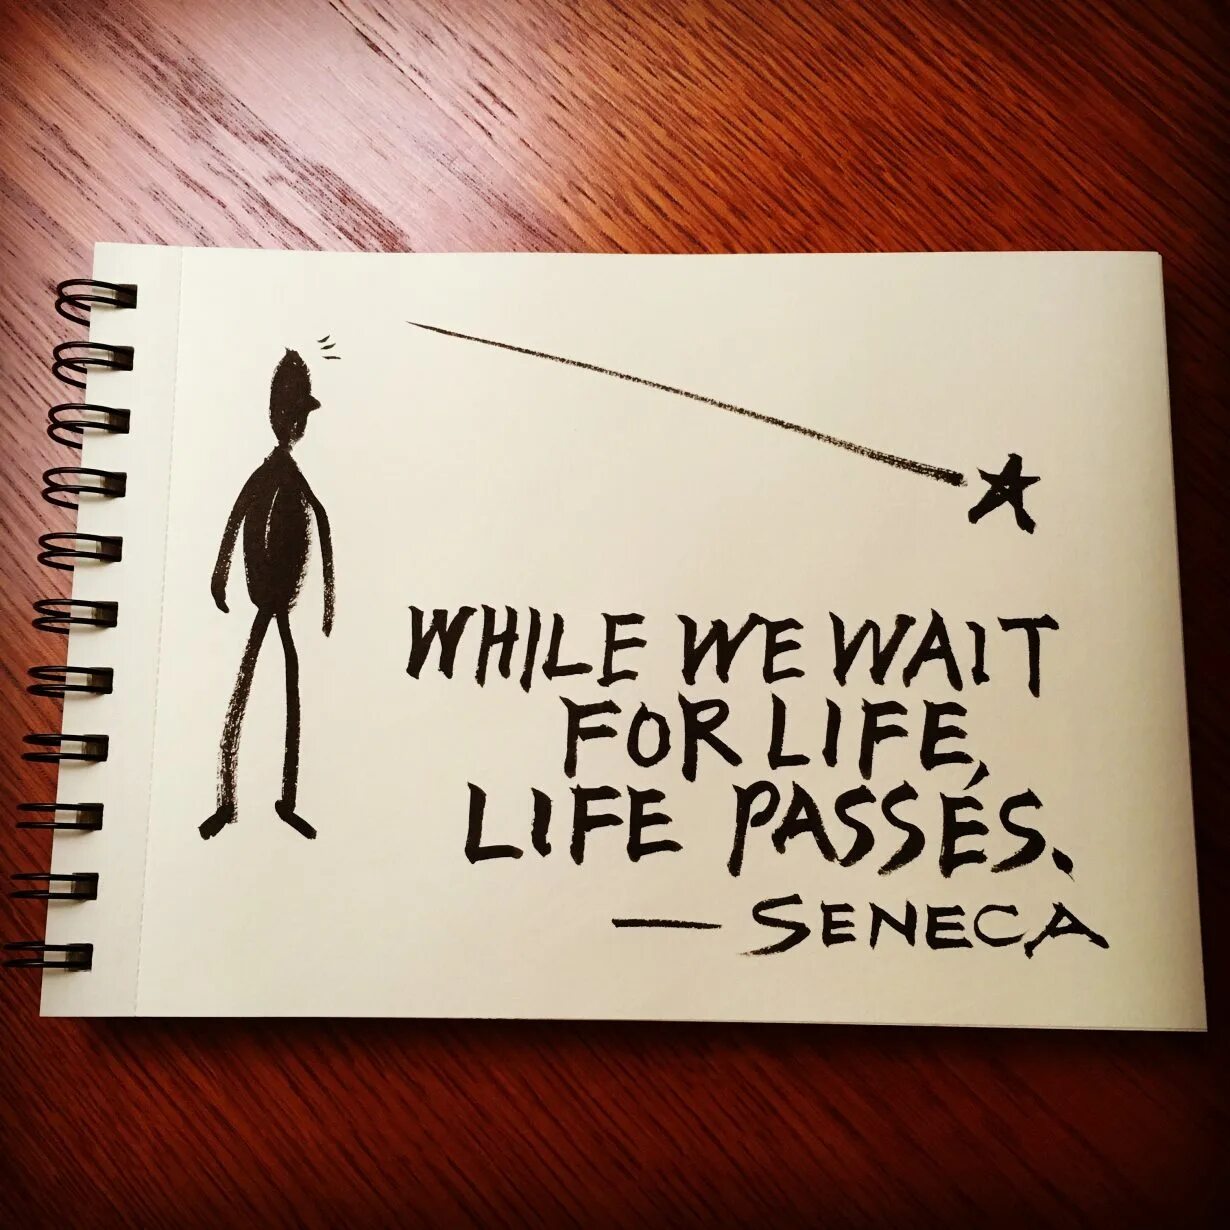 WHILE WE WAIT
FOR LIFE,
LIFE PASSES.
— SENECA